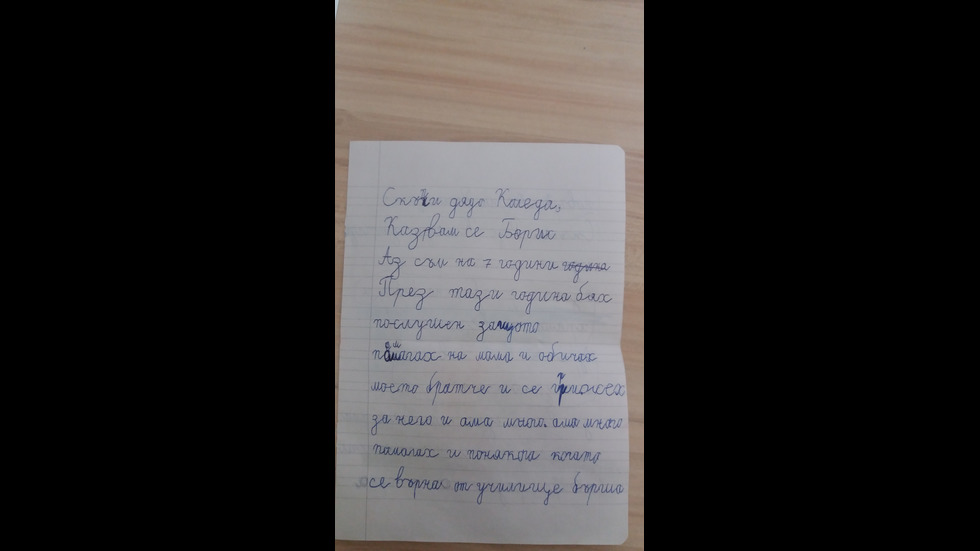 Скъпи дядо Коледа,
Казвам се Борис
Аз съм на 7 години година
През тази година бях
послушен защото
помагах на мама и обичах
моето братче и се грижех
за него и ама много. ама много
памагах и понякога когато
се върна от училище бърша